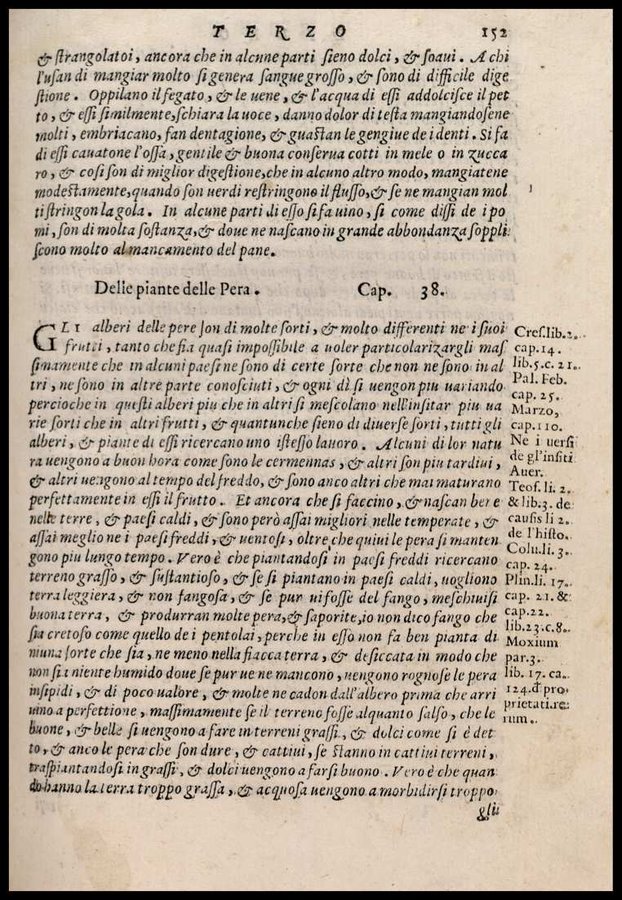 TERZO 152
& strangolatoi, ancora che in alcune parti sieno dolci, & soaui. A chi
l'usan di mangiar molto si genera sangue grosso, & sono di difficile dige
stione. Oppilano il fegato, & le uene, & l'acqua di essi addolcisce il pet
to, & essi similmente, schiara la uoce, danno dolor di testa mangiandosene
molti, embriacano, fan dentagione, & guastan le gengiue de i denti. Si fa
di essi cauatone l'ossa, gentile & buona conserua cotti in mele o in zucca
ro, & cosi son di miglior digestione, che in alcuno altro modo, mangiatene
modestamente, quando son uerdi restringono il flusso, & se ne mangian mol
ti stringon la gola. In alcune parti di esso si fa uino, si come dissi de i po
mi, son di molta sostanza, & doue ne nascano in grande abbondanza soppli
scono molto al mancamento del pane.
Delle piante delle Pera. Cap. 38.
GLI alberi delle pere son di molte sorti, & molto differenti ne i suoi
frutti, tanto che sia quasi impossibile a uoler particolarizargli mas
simamente che in alcuni paesi ne sono di certe sorte che non ne sono in al
tri, ne sono in altre parte conosciuti, & ogni dì si uengon piu uariando
percioche in questi alberi piu che in altri si mescolano nell'insitar piu ua
rie sorti che in altri frutti, & quantunche sieno di diuerse sorti, tutti gli
alberi, & piante di essi ricercano uno istesso lauoro. Alcuni di lor natu
ra uengono a buon hora come sono le cermennas, & altri son piu tardiui,
& altri uengono al tempo del freddo, & sono anco altri che mai maturano
perfettamente in essi il frutto. Et ancora che si faccino, & nascan bene
nelle terre, & paesi caldi, & sono però assai migliori nelle temperate, &
assai meglio ne i paesi freddi, & uentosi, oltre che quiui le pera si manten
gono piu lungo tempo. Vero è che piantandosi in paesi freddi ricercano
terreno grasso, & sustantioso, & se si piantano in paesi caldi, uogliono
terra leggiera, & non fangosa, & se pur ui fosse del fango, meschiuisi
buona terra, & produrran molte pera, & saporite, io non dico fango che
sia cretoso come quello de i pentolai, perche in esso non fa ben pianta di
niuna sorte che sia, ne meno nella fiacca terra, & desiccata in modo che
non sia niente humido doue se pur ue ne mancono, uengono rognose le pera
insipidi, & di poco ualore, & molte ne cadon dall'albero prima che arri
uino a perfettione, massimamente se il terreno fosse alquanto salso, che le
buone, & belle si uengono a fare in terreni grassi, & dolci come si è det
to, & anco le pera che son dure, & cattiui, se stanno in cattiui terreni,
traspiantandosi in grassi, & dolci uengono a farsi buono. Vero è che quan
do hanno la terra troppo grassa, & acquosa uengono a morbidirsi troppo
glii
Cres. lib. 2.
cap. 14.
lib. 5. c. 21.
Pal. Feb.
cap. 25.
Marzo,
cap. 110.
Ne i uersi
de gl'insiti
Auer.
Teof. li. 2.
& lib. 3. de
causis li 2.
de l'histo.
Colu. li. 3.
cap. 24.
Plin. li. 17.
cap. 21. &
cap. 22.
lib. 23. c. 8.
Moxium
par. 3.
lib. 17. ca.
124. đ pro
prietati. re
rum.